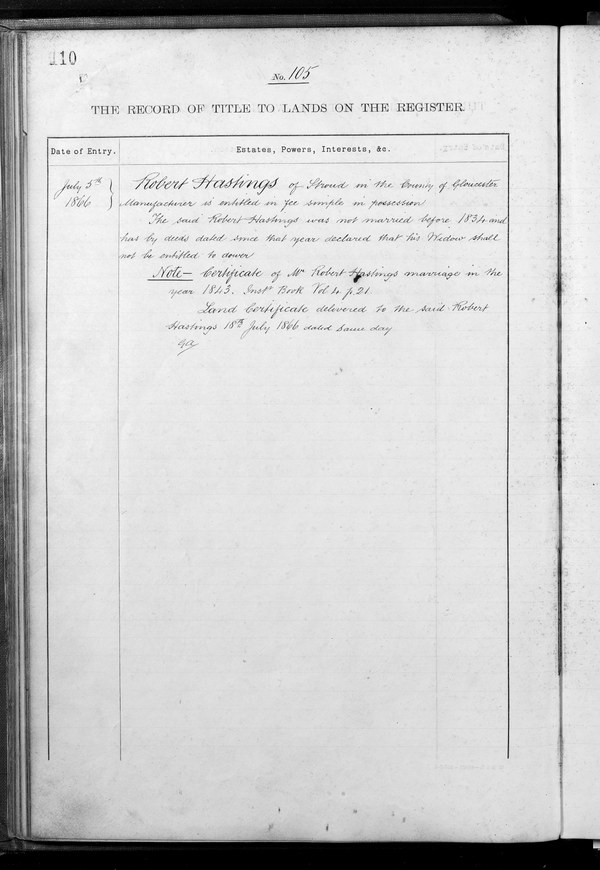 110
No. 105
THE RECORD OF TITLE TO LANDS ON THE REGISTER.
Date of Entry.
Estates, Powers, Interests, &c.
July 5th
1866
Robert Hastings of Stroud in the County of Gloucester
Manufacturer is entitled in fee simple in possession
The said Robert Hastings was not married before 1834 and
has by deeds dated since that year declared that his Widow shall
not be entitled to dower
Note— Certificate of Mr Robert Hastings marriage in the
year 1843. Inst. Book Vol 4. p. 21.
Land Certificate delivered to the said Robert
Hastings 18th July 1866 dated same day